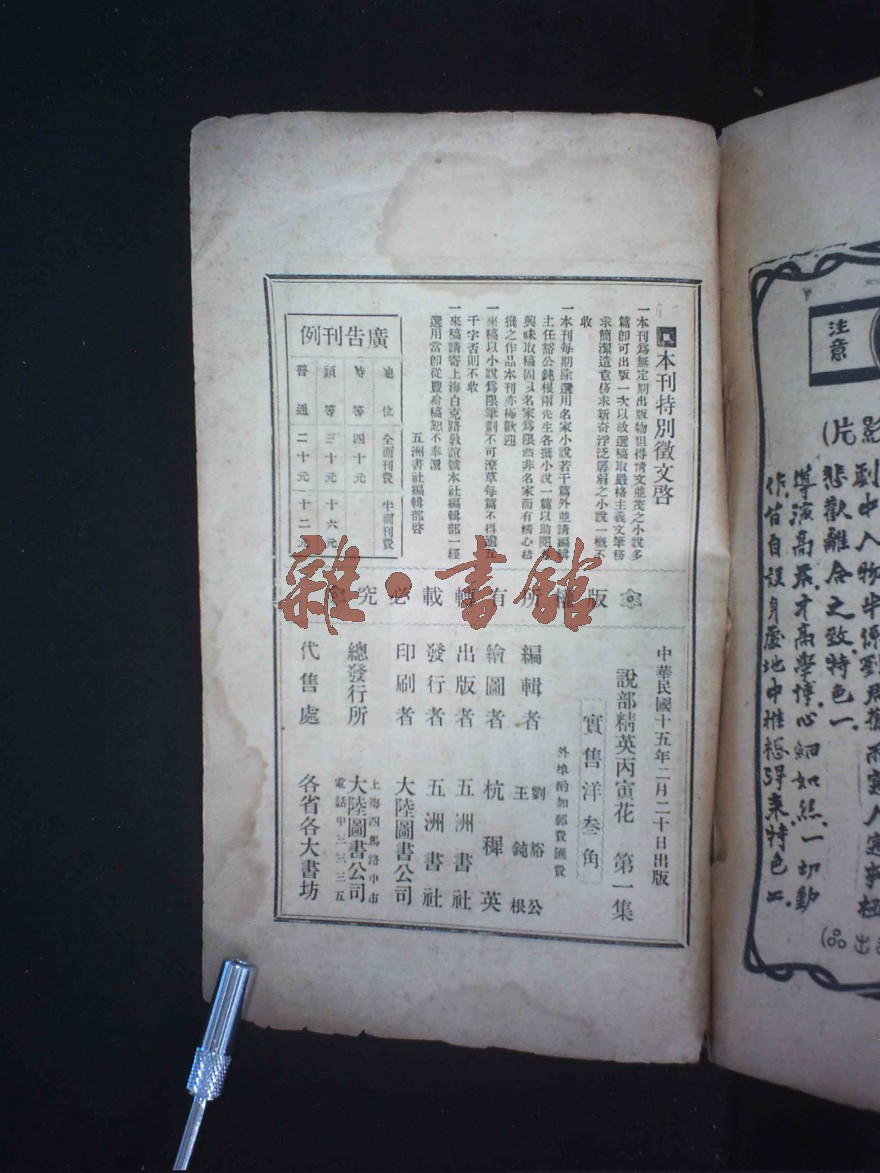 本刊特別徵文啓
一本刊爲無定期出版物但得情文並茂之小說多
篇卽可出版一次以故選稿取嚴格主義文筆務
求簡潔造意務求新奇浮泛孱弱之小說一概不
收
一本刊每期除選用名家小說若干篇外並請編輯
主任豁公鈍根兩先生各撰小說一篇以助閱者
興味取稿固以名家爲限然非名家而有精心結
撰之作品本刊亦極歡迎
一來稿以小說爲限筆劃不可潦草每篇不得過五
千字否則不收
一來稿請寄上海白克路敦誼號本社編輯部一經
選用當卽從豐給稿恕不奉還
五洲書社編輯部啓
廣告刊例
地位 全面刊費 半面刊費
特等 四十元
頭等 三十元 十六元
普通 二十元 十二元
版權所有轉載必究
中華民國十五年二月二十日出版
說部精英丙寅花 第一集
實售洋叁角
外埠酌加郵費匯費
編輯者 劉豁公 王鈍根
繪圖者 杭穉英
出版者 五洲書社
發行者 五洲書社
印刷者 大陸圖書公司
總發行所 上海四馬路中市 大陸圖書公司 電話中三三三五
代售處 各省各大書坊
雜·書館
注意
影片)
劇中人物
悲歡離合之致特色一
導演高
作皆自設身處地中推想得來特色二